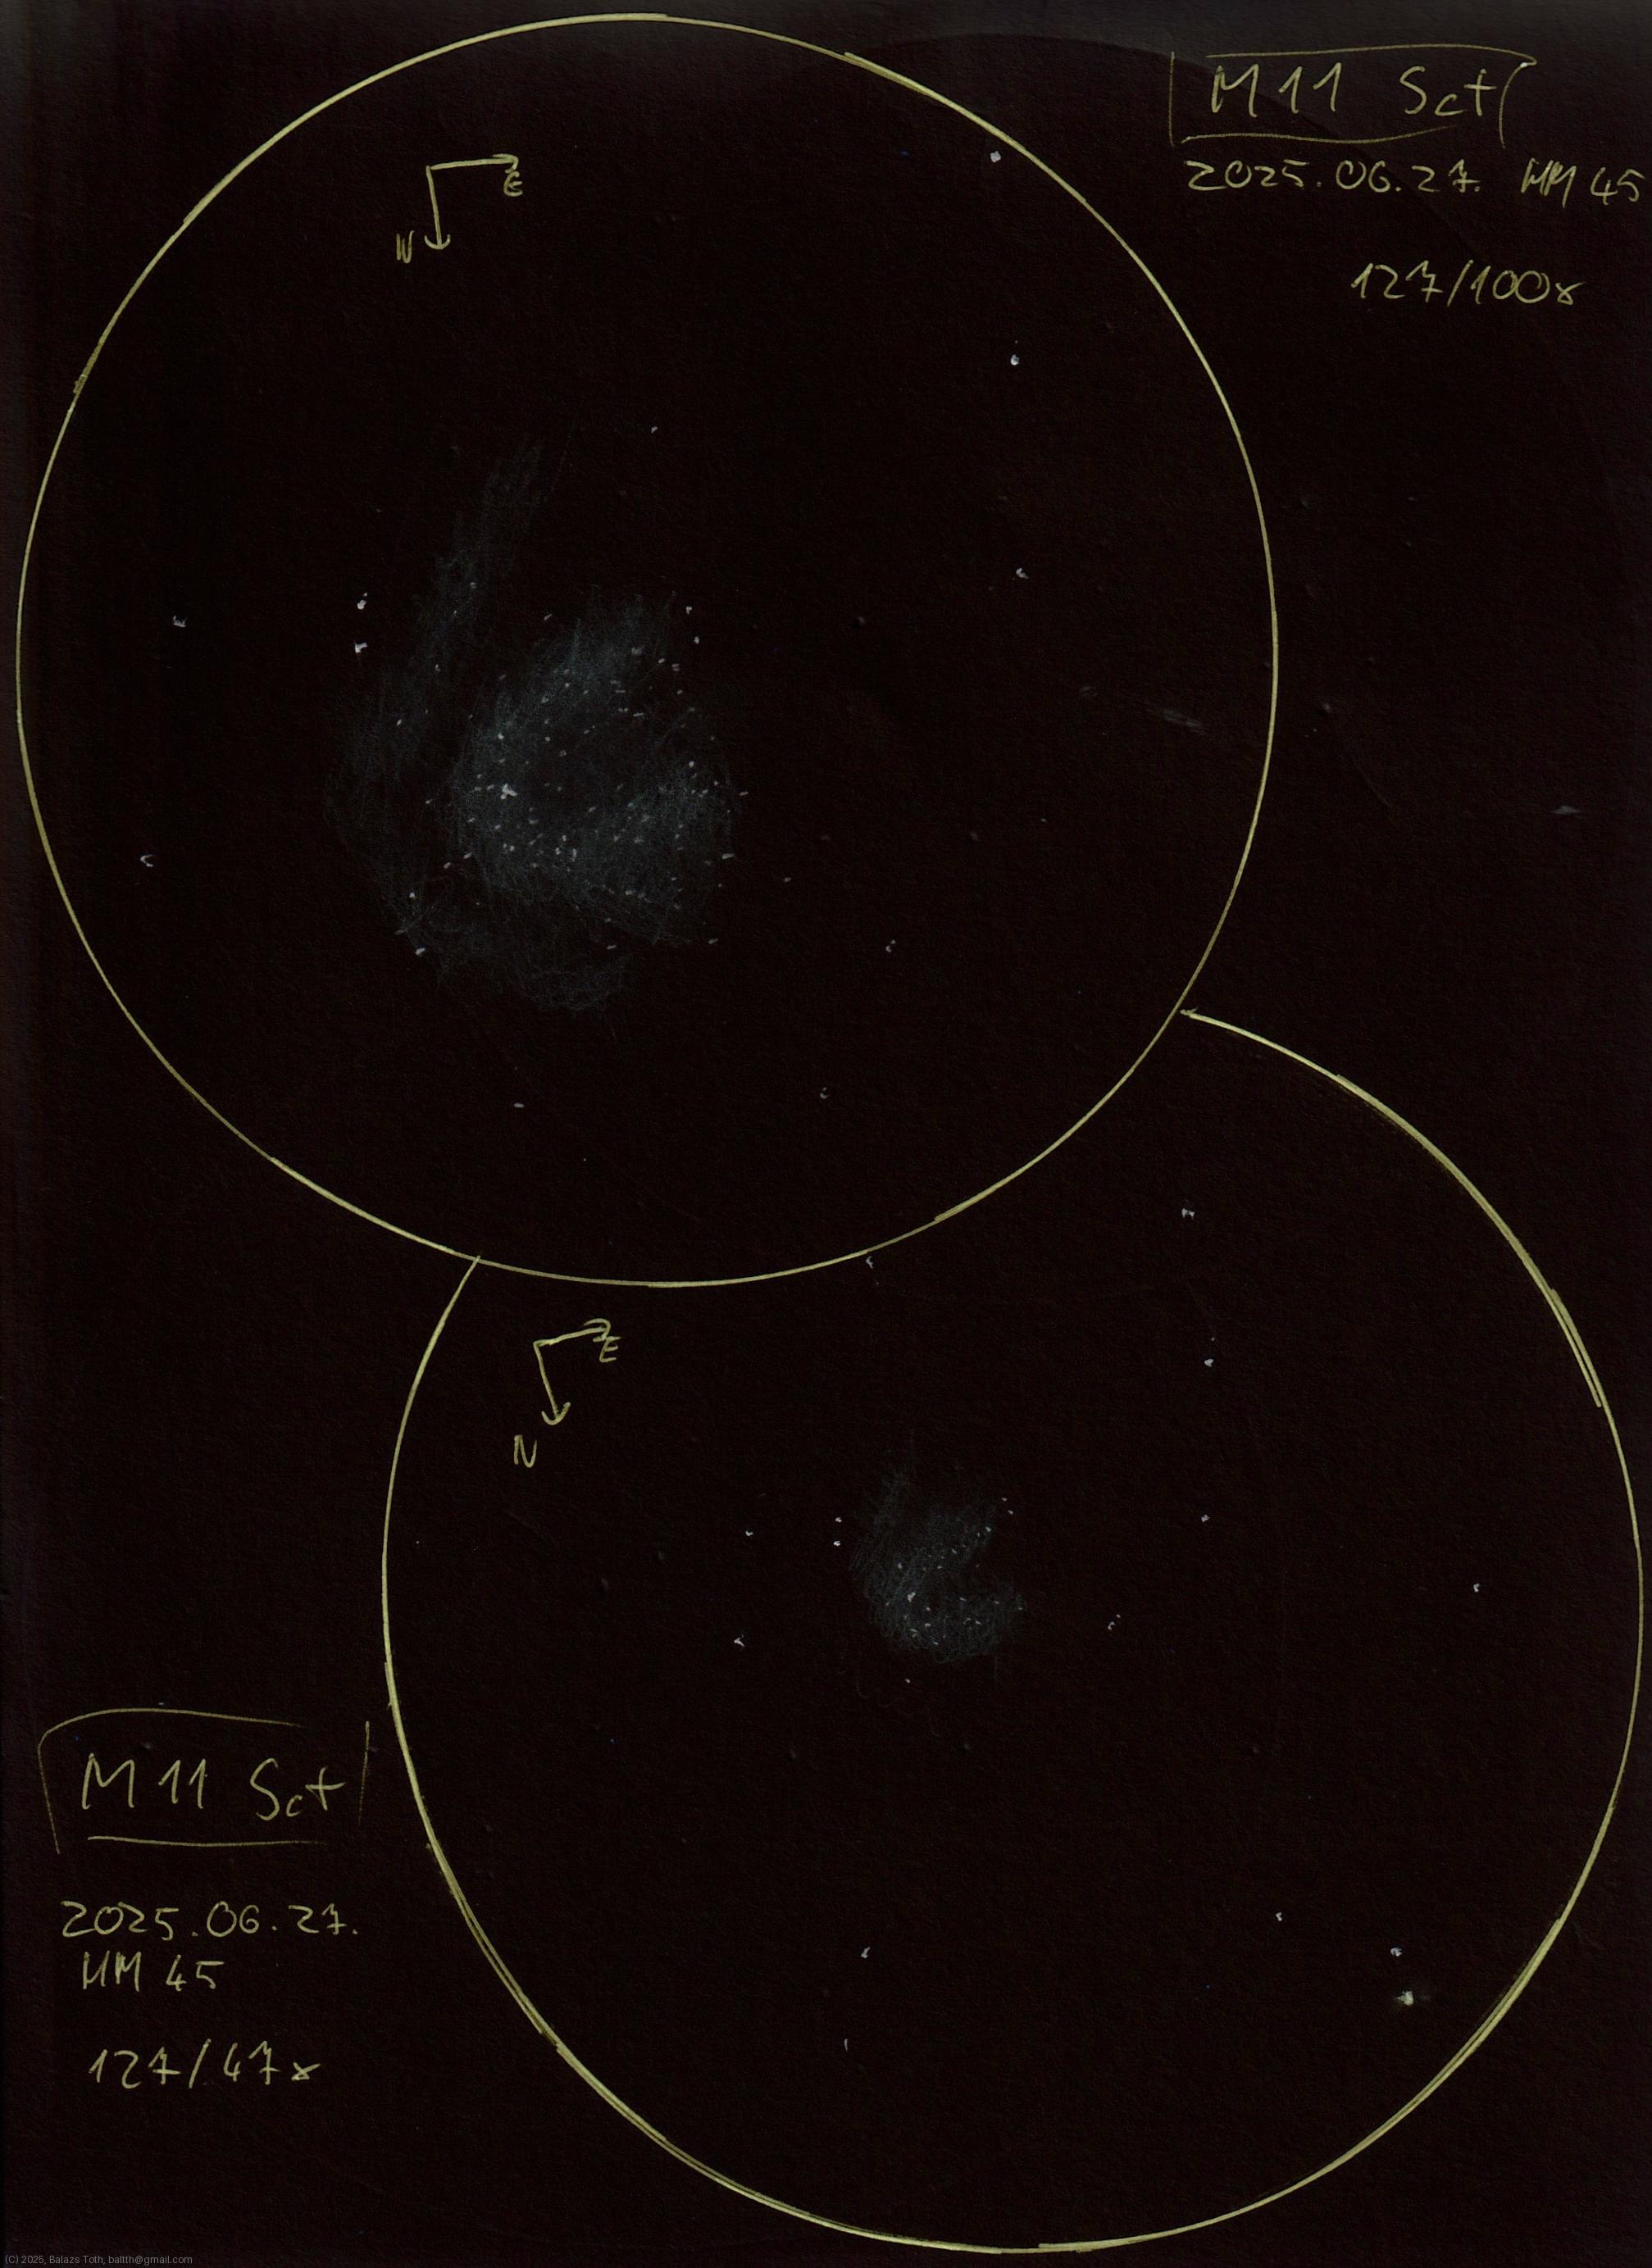 M11 Sct
2025.06.27. HM 45
127/100x
E
N
E
N
M11 Sct
2025.06.27.
HM 45
127/47x
(C) 2025, Balazs Toth, baltth@gmail.com